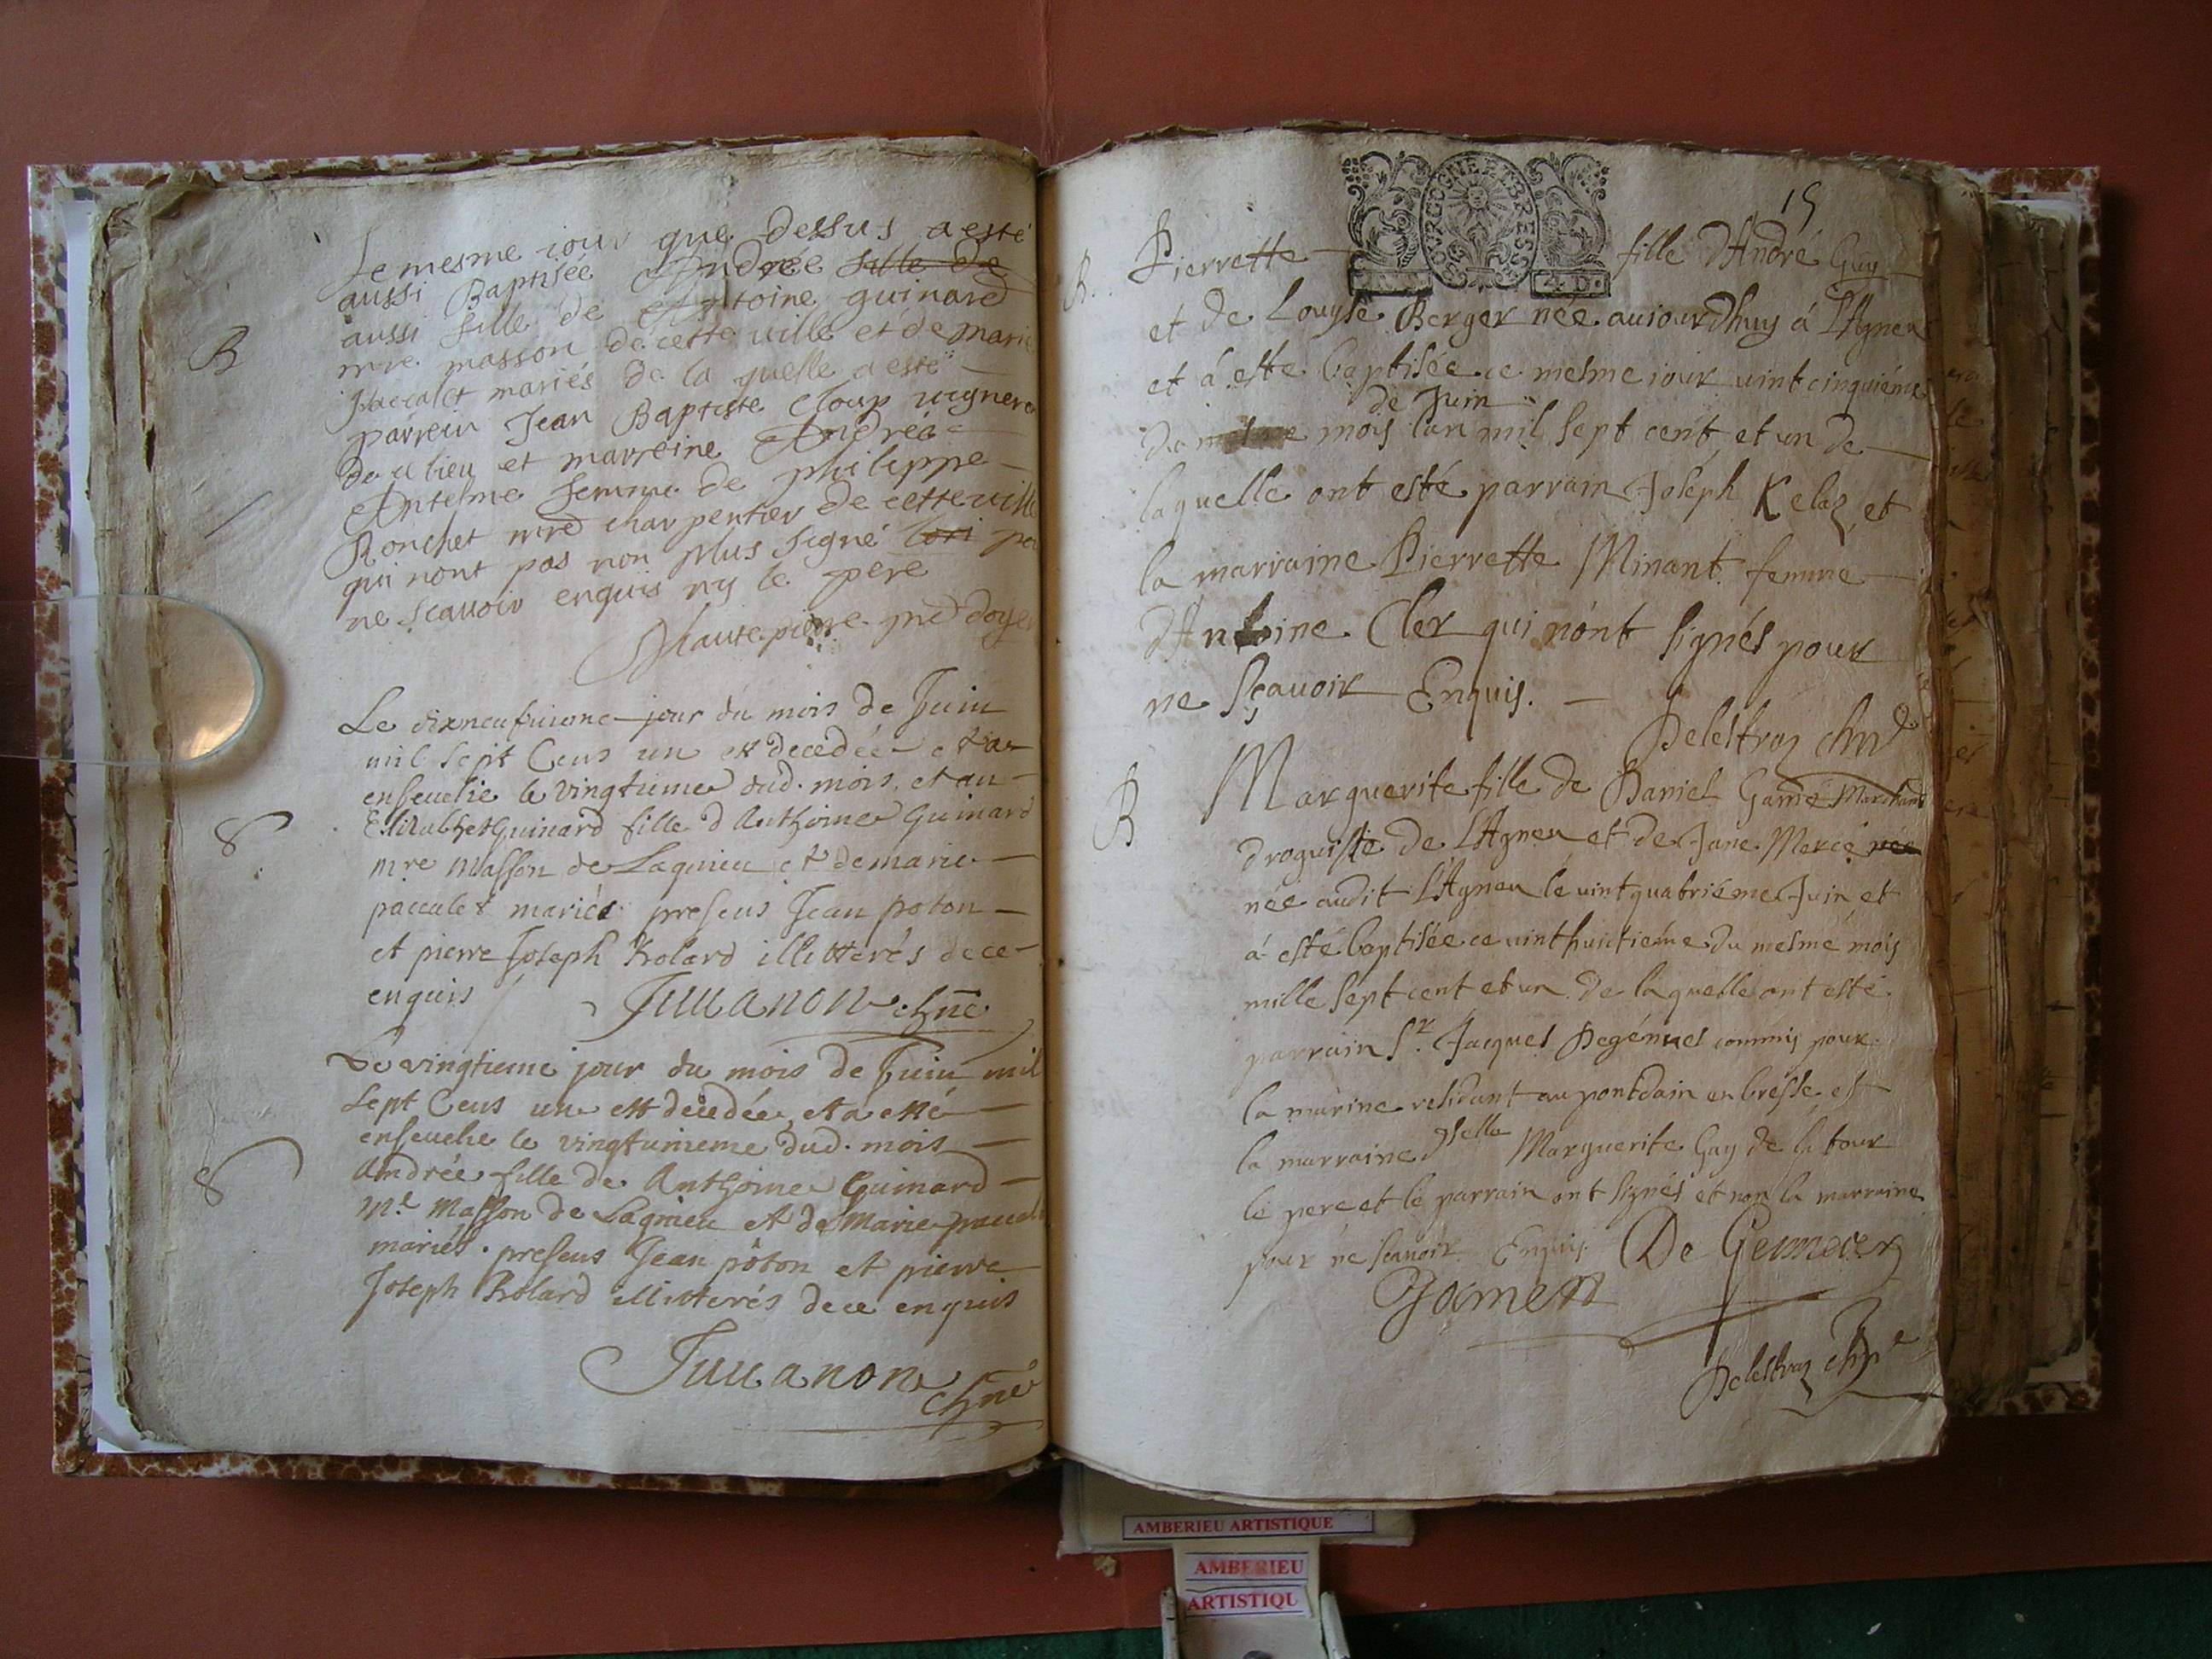 Le mesme iour que dessus a esté
aussi Baptisée Andrée fille de
aussi fille de Antoine guinard
B
mre masson de cette ville et de marie
paccalet mariés de la quelle a esté
parrein Jean Baptiste Cloup vigneron
de ce lieu et marreine Andréa
Antelme femme de philippe
Ronchet mre charpentier de cette ville
qui nont pas non plus signé pour
ne scauoir enquis ny le pere
Hautepierre pre doyen
Le dixneufuieme jour du mois de Juin
mil sept Cens un est decedée et a
enseuelie le vingtieme dud. mois, et an
8
Elizabhet Guinard fille d Anthoine Guinard
mre Masson de Lagnieu et de marie
paccalet mariés presens Jean poton
et pierre Joseph Rolard illitterés de ce
enquis
Juuanon chne
Le vingtieme jour du mois de Juin mil
sept Cens un est decedée, et a esté
enseuelie le vingtunieme dud. mois
8
Andrée fille de Anthoine Guinard
Me Masson de Lagnieu et de Marie paccalet
mariés. presens Jean pôton et pierre
Joseph Rolard illitterés de ce enquis
Juuanon
chne
15
BOURGOGNE ET BRESSE
4 D.
B. Pierrette fille d'André Guy
et de Louyse Berger née auiourdhuy á LAgneu
et á esté baptisée ce mesme iour uint cinquiéme
de Juin
du mois lan mil sept cent et un de
laquelle ont esté parrain Joseph Kelaz et
la marraine Pierrette Minant femme
dAntoine Cler qui nónt signés pour
ne Sçauoir Enquis.
Delestraz chne
B
Marguerite fille de Daniel Gamé Marchand
droguiste de LAgneu et de Jane Mercé née
née audit LAgneu le uint quatriéme Juin et
á esté baptisée ce uint huictiéme du mesme mois
mille sept cent et un de laquelle ont esté
parrain Sr. Jacques Degénnes commis pour
la marine residant au pontdain en bresse et
la marraine dselle Marguerite Guy de la tour
le pere et le parrain ont signés et non la marraine
pour ne scauoir Enquis. De Gennes
Gamen
Delestraz chne
AMBERIEU ARTISTIQUE
AMBERIEU
ARTISTIQU